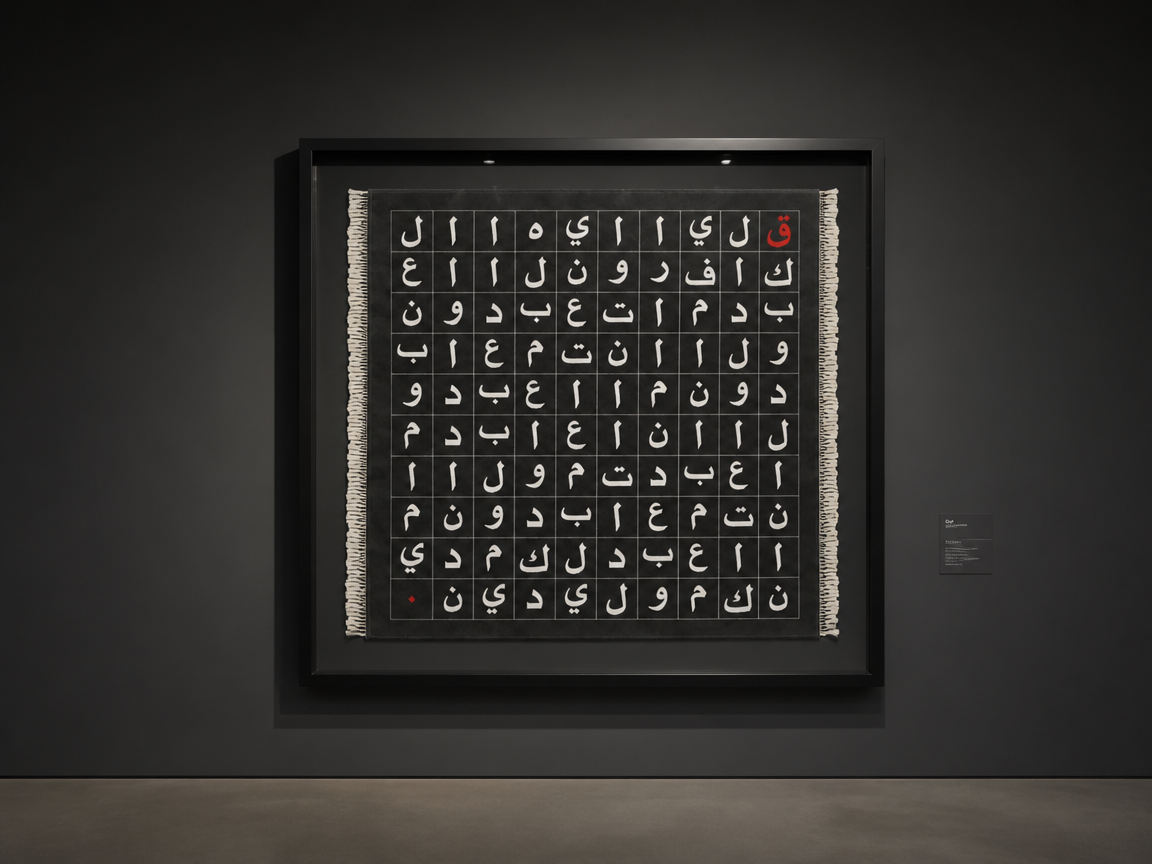 ق ل ي ا ا ي ه ا ا ل
ك ا ف ر و ن ل ا ا ع
ب د م ا ت ع ب د و ن
و ل ا ا ن ت م ع ا ب
د و ن م ا ا ع ب د و
ل ا ا ن ا ع ا ب د م
ا ع ب د ت م و ل ا ا
ن ت م ع ا ب د و ن م
ا ا ع ب د ل ك م د ي
ن ك م و ل ي د ي ن .